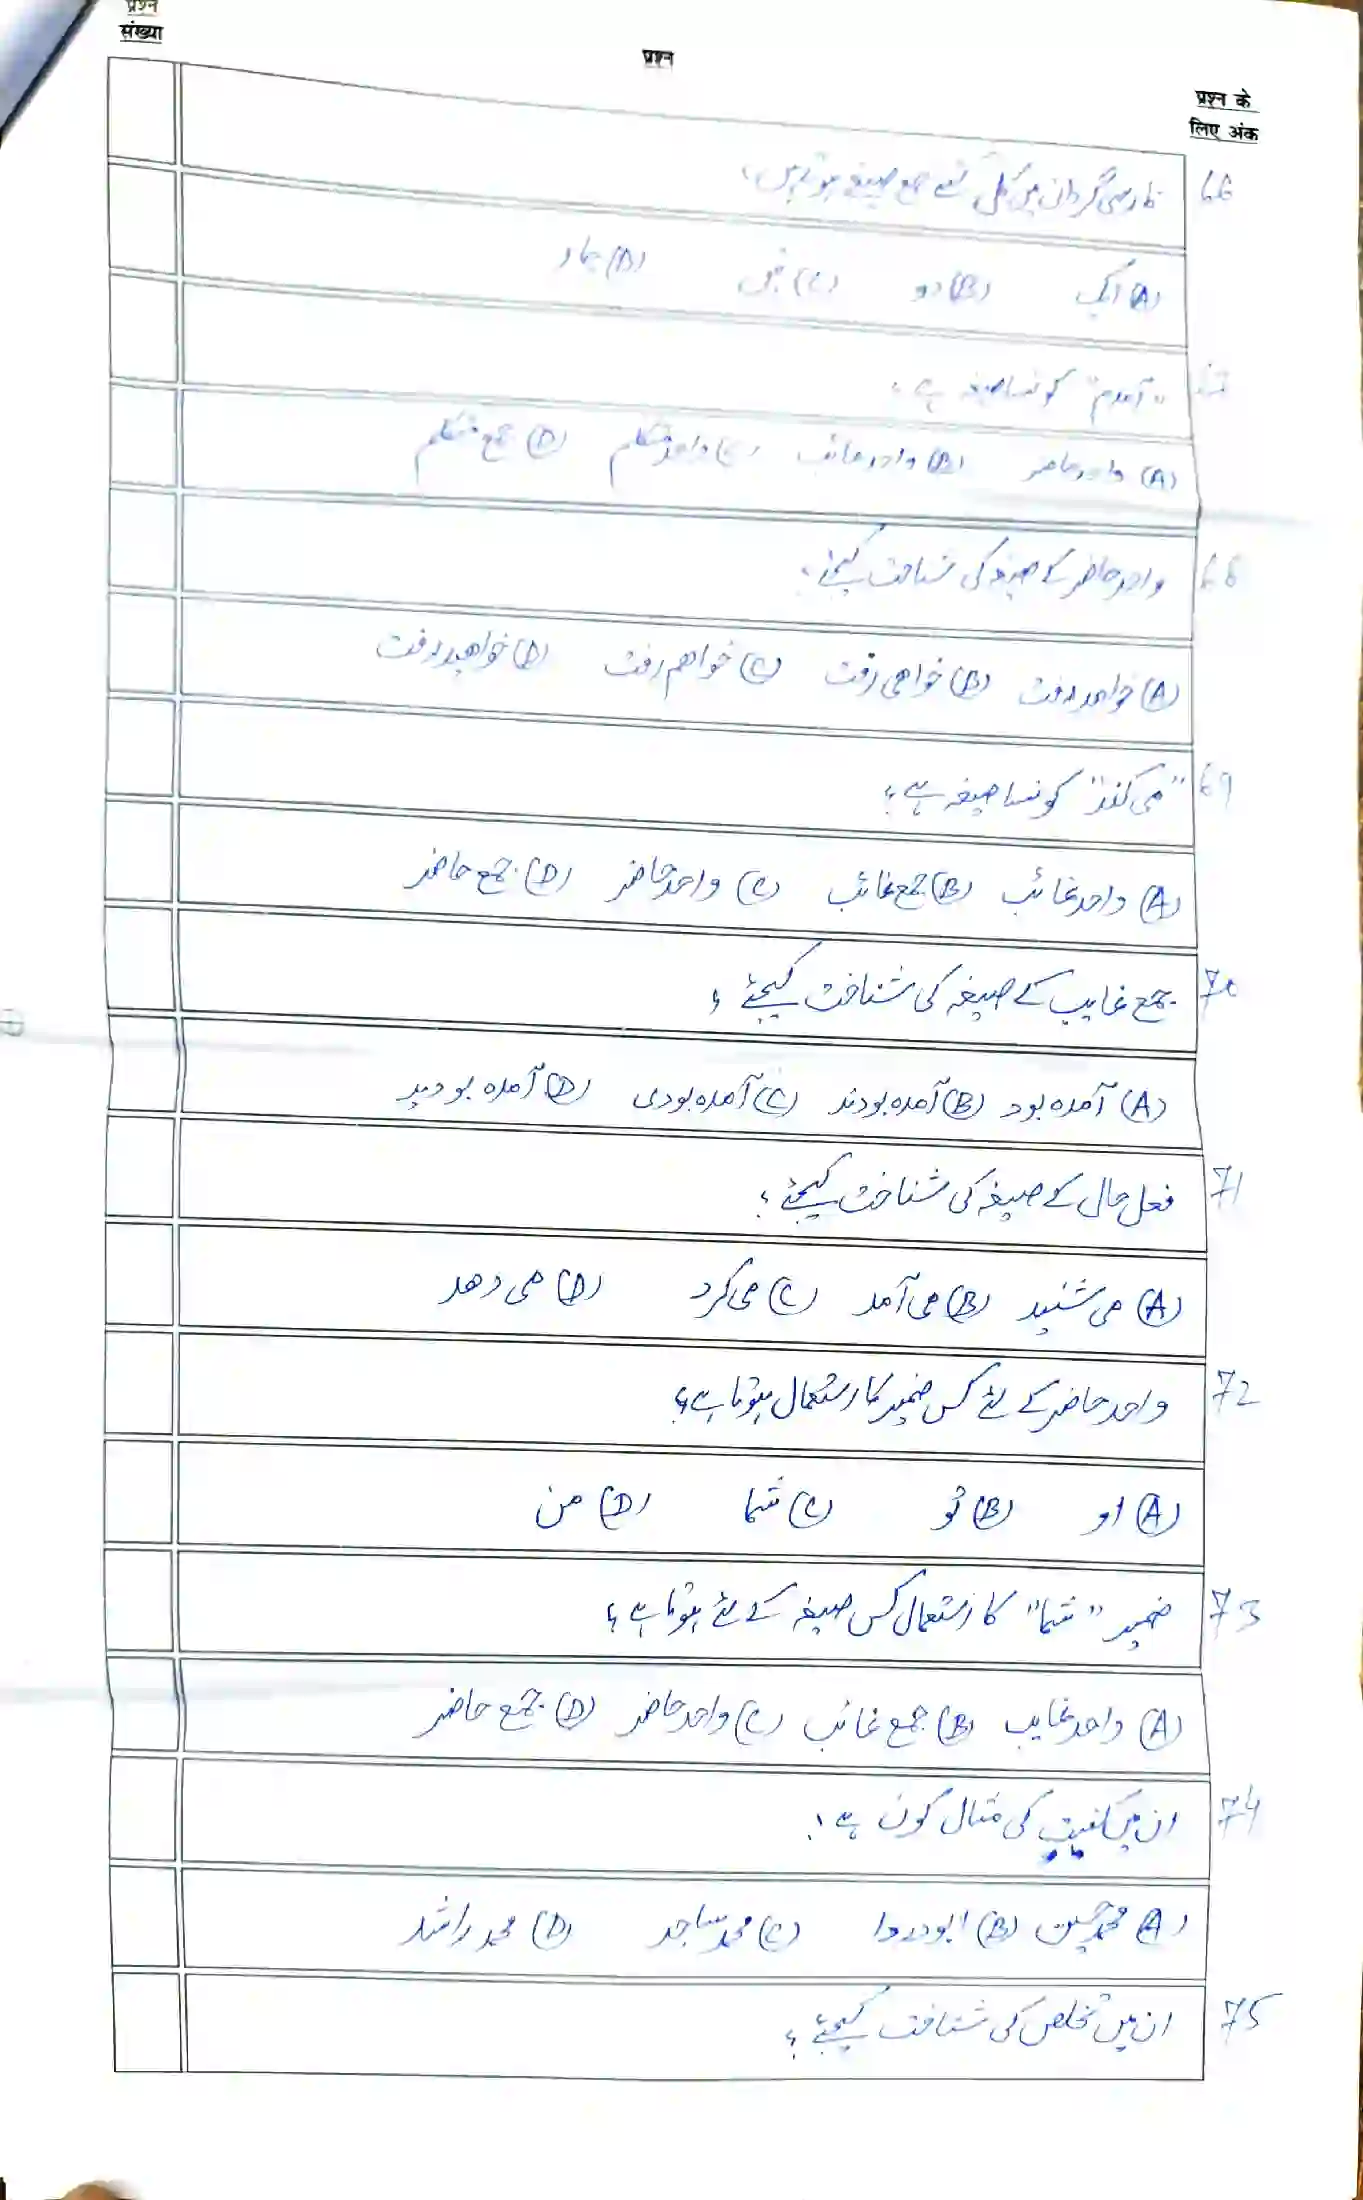 प्रश्न
संख्या
प्रश्न
प्रश्न के
लिए अंक
66 فارسی گردان میں کل کتنے جمع صیغے ہوتے ہیں؟
(A) ایک (B) دو (C) تین (D) چار
67 "آمدم" کونسا صیغہ ہے؟
(A) واحد حاضر (B) واحد غائب (C) واحد متکلم (D) جمع متکلم
68 واحد حاضر کے صیغہ کی شناخت کیجئے؟
(A) خواهد رفت (B) خواهی رفت (C) خواهم رفت (D) خواهید رفت
69 "می کند" کونسا صیغہ ہے؟
(A) واحد غائب (B) جمع غائب (C) واحد حاضر (D) جمع حاضر
70 جمع غایب کے صیغہ کی شناخت کیجئے؟
(A) آمدہ بود (B) آمدہ بودند (C) آمدہ بودی (D) آمدہ بودید
71 فعل حال کے صیغہ کی شناخت کیجئے؟
(A) می شنید (B) می آمد (C) می کرد (D) می دهد
72 واحد حاضر کے لئے کس ضمیر کا استعمال ہوتا ہے؟
(A) او (B) تو (C) شما (D) من
73 ضمیر "شما" کا استعمال کس صیغہ کے لئے ہوتا ہے؟
(A) واحد غایب (B) جمع غائب (C) واحد حاضر (D) جمع حاضر
74 ان میں کنیت کی مثال کون ہے؟
(A) محمد حسین (B) ابودردا (C) محمد ساجد (D) محمد راشد
75 ان میں تخلص کی شناخت کیجئے؟